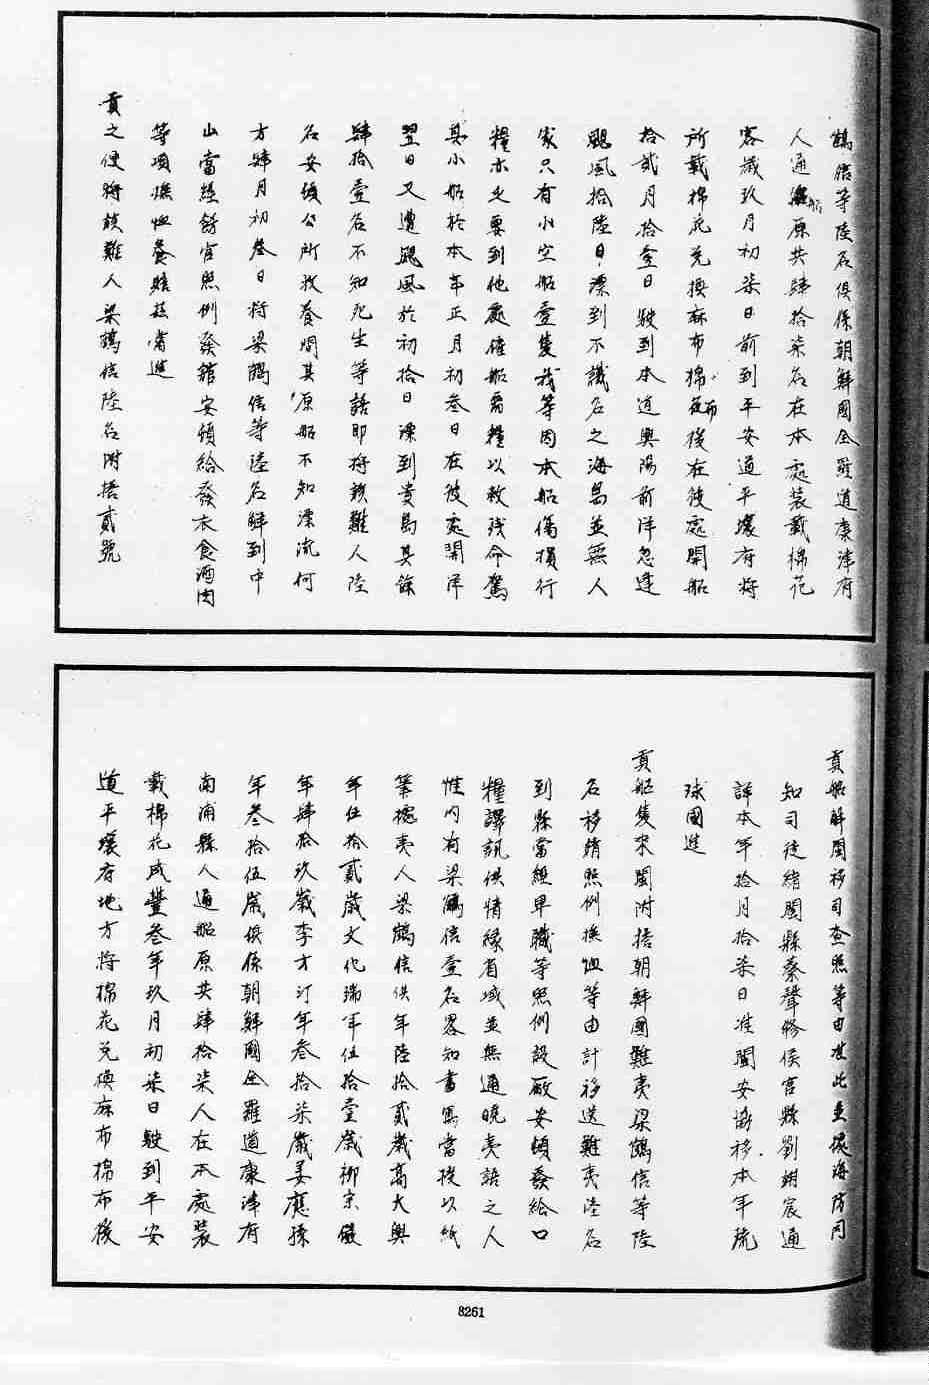 鶴信等陸名俱係朝鮮國全羅道康津府
人通船原共肆拾柒名在本處裝載棉花
客歲玖月初柒日前到平安道平壤府將
所載棉花兌換麻布棉布後在彼處開船
拾貳月拾壹日駛到本道興陽前洋忽逢
颶風拾陸日漂到不識名之海島並無人
家只有小空船壹隻我等因本船傷損行
糧亦乏要到他處僱船買糧以救殘命駕
其小船於本年正月初叁日在彼處開洋
翌日又遭颶風於初拾日漂到貴島其餘
肆拾壹名不知死生等語即將該難人陸
名安頓公所救養問其原船不知漂流何
方肆月初叁日將梁鶴信等陸名解到中
山當經飭官照例發館安頓給發衣食酒肉
等項撫恤養贍茲當進
貢之便將該難人梁鶴信陸名附搭貳號
貢船解閩移司查照等由准此並據海防同
知司徒緒閩縣秦聲侯官縣劉宸通
詳本年拾月拾柒日准閩安協移本年琉
球國進
貢船隻來閩附搭朝鮮國難夷梁鶴信等陸
名移請照例撫恤等由計移送難夷陸名
到縣當經卑職等照例設廠安頓發給口
糧譯訊供情緣省城並無通曉夷語之人
惟內有梁鶴信壹名畧知書寫當授以紙
筆據夷人梁鶴信供年陸拾貳歲高大興
年伍拾貳歲文化瑞年伍拾壹歲柳宗儀
年肆拾玖歲李才汀年叁拾柒歲姜應孫
年叁拾伍歲俱係朝鮮國全羅道康津府
南浦縣人通船原共肆拾柒人在本處裝
載棉花咸豐叁年玖月初柒日駛到平安
道平壤府地方將棉花兌換麻布棉布後
8261